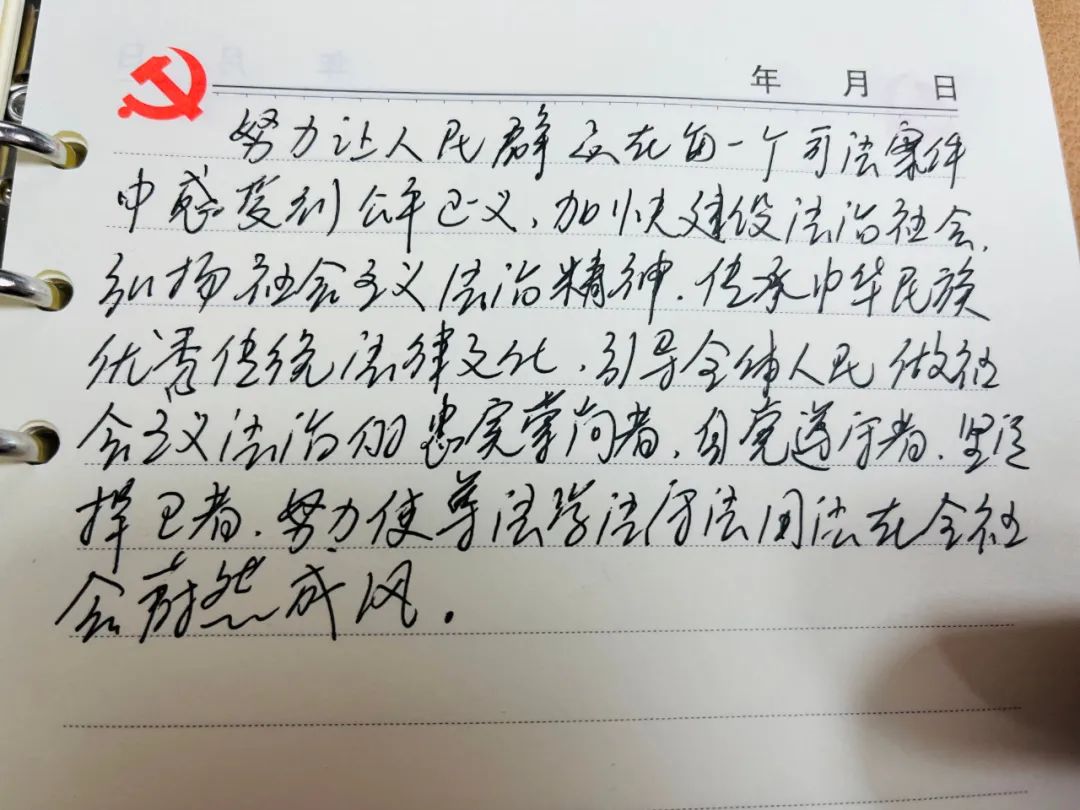 年 月 日
努力让人民群众在每一个司法案件
中感受到公平正义，加快建设法治社会，
弘扬社会主义法治精神，传承中华民族
优秀传统法律文化，引导全体人民做社
会主义法治的忠实崇尚者，自觉遵守者，坚定
捍卫者，努力使尊法学法守法用法在全社
会蔚然成风。